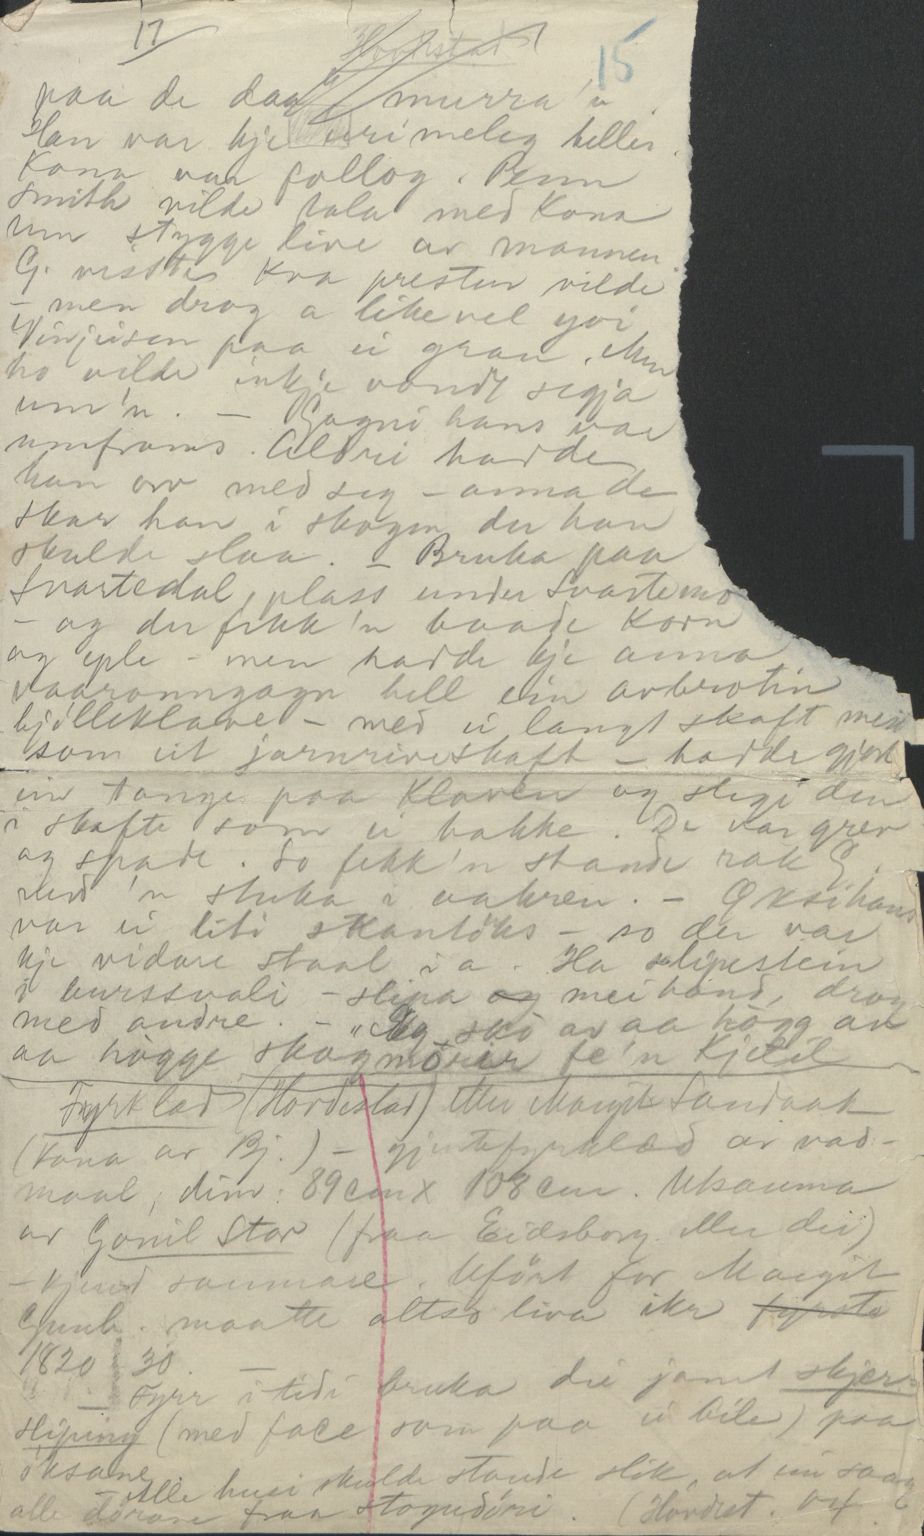 17 Hovdestad 15
paa de dag, murra 'n.
Han var kje urimeleg heller.
Kona var follog. Penn
Smith vilde tala med Kona
um stygge live av mannen.
G. visste kva presten vilde
– men drog a likevel yvi
Vinjeisen paa ei gran. Men
ho vilde inkje vondt segja
um'n. – Gagni hans var
umframs. Aldri hadde
han orv med seg – anna de
skar han i skogen der han
skulde slaa. – Bruka paa
Svartedal, plass under Svartemo
– og der fekk'n baade korn
og eple – men hadde kje anna
vaaronngagn hell ein avbrotin
bjølleklave – med ei langt skaft mei
som eit jarnriveskaft – hadde gjort
ein tange paa klaven og slegi den
i skafte som ei hakke. De var grev
og spade. So fekk'n stande rak G.
med 'n stuka i aakren. – Øksi hans
var ei liti skantøks – so der var
kje vidare staal i a. Ha slipestein
i burssvali – slipa mei hond, drog
med andre. – "Eg skò av aa högg av
aa högge skogmòrir fe'n Kjetil
Fyrklæd (Hovdestad) etter Margit Sandaak
(kona av Bj.) – gjentefyrklæd av vad-
maal, dim: 89 cm x 108 cm. Utsauma
av Gonil Stor (fraa Eidsborg eller der)
– kjend saumare. Utført for Margit
Gunh. maatte altso liva ikr fyrste
1820 30. –
– Fyrr i tidi bruka dei jamt skjer-
sliping (med face som paa ei bile) paa
øksane
– Alle husi skulde stande slik, at ein saag
alle dørane fraa stogedøri. (Hovdest. OH.